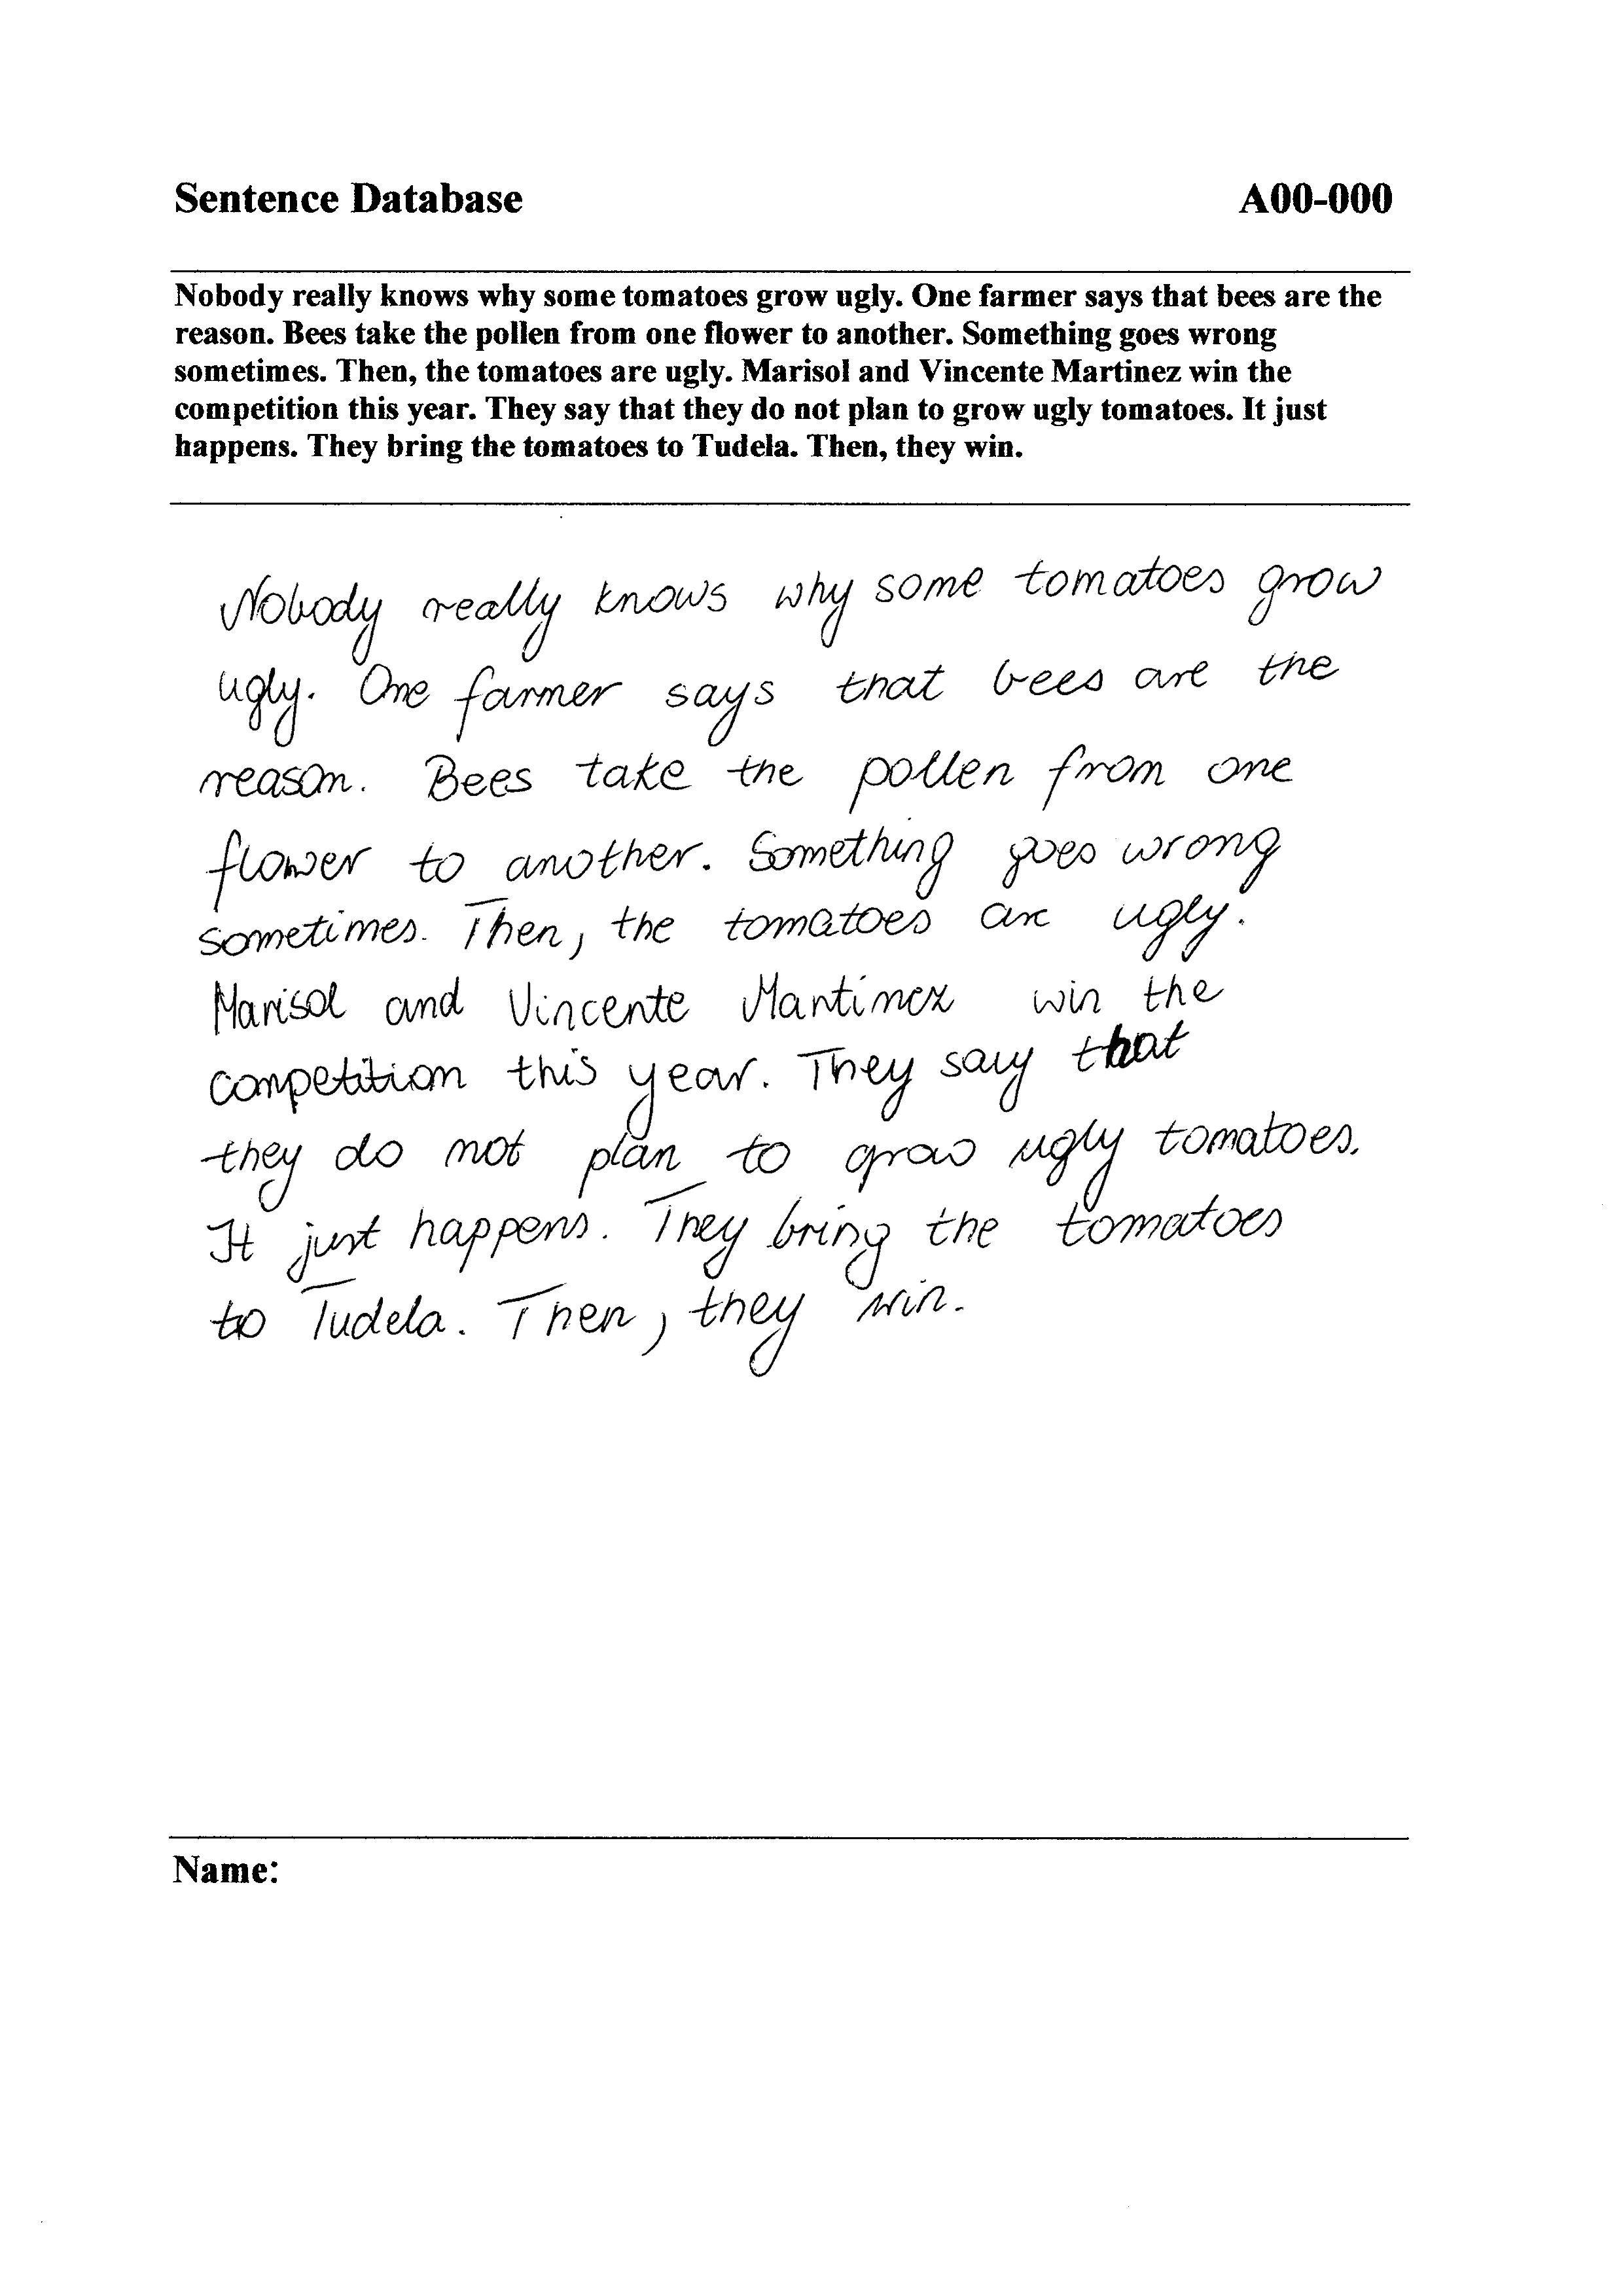 Sentence Database A00-000
Nobody really knows why some tomatoes grow ugly. One farmer says that bees are the
reason. Bees take the pollen from one flower to another. Something goes wrong
sometimes. Then, the tomatoes are ugly. Marisol and Vincente Martinez win the
competition this year. They say that they do not plan to grow ugly tomatoes. It just
happens. They bring the tomatoes to Tudela. Then, they win.
Nobody really knows why some tomatoes grow
ugly. One farmer says that bees are the
reason. Bees take the pollen from one
flower to another. Something goes wrong
sometimes. Then, the tomatoes are ugly.
Marisol and Vincente Martinez win the
competition this year. They say that
they do not plan to grow ugly tomatoes.
It just happens. They bring the tomatoes
to Tudela. Then, they win.
Name: